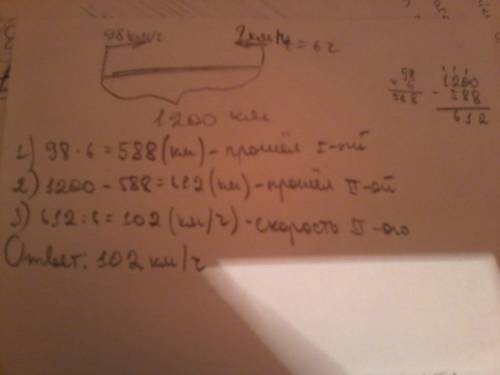 98 км/ч ? км/ч t = 6 ч
1200 км
98
6
588
1200
588
612
1) 98 · 6 = 588 (км) - прошёл I-ый
2) 1200 - 588 = 612 (км) - прошёл II-ой
3) 612 : 6 = 102 (км/ч) - скорость II-ого
Ответ: 102 км/ч